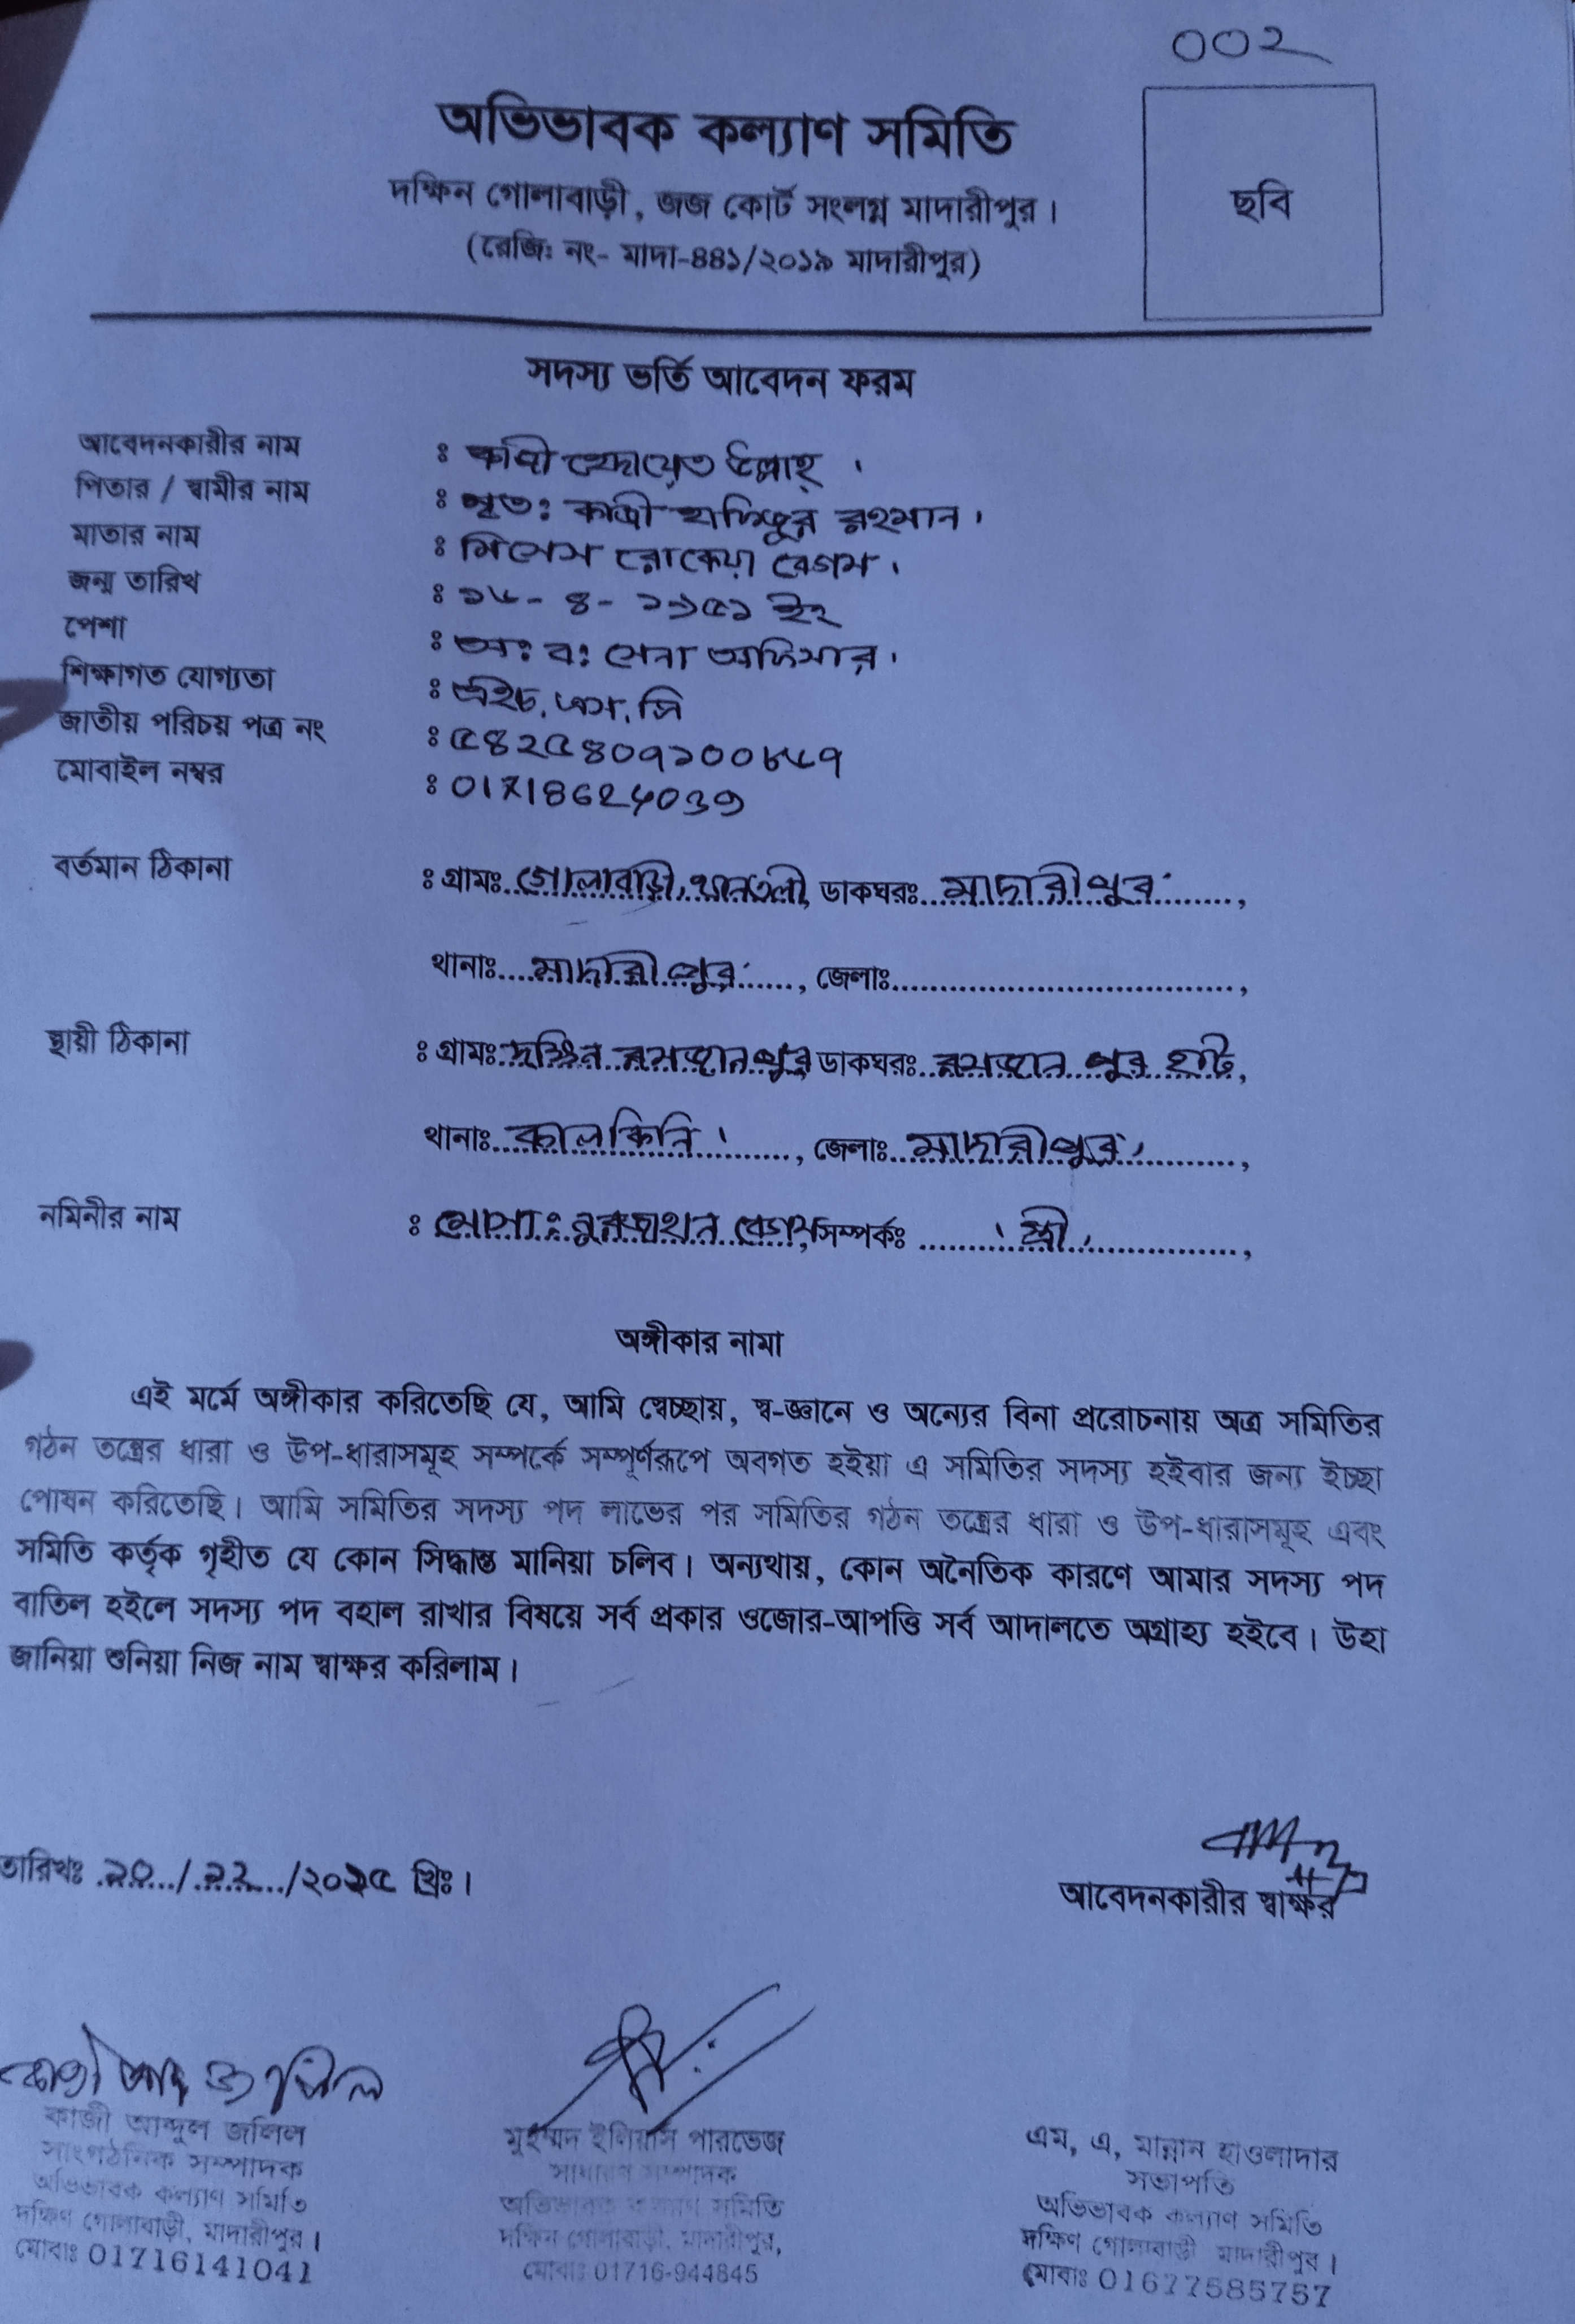 ০০২
অভিভাবক কল্যাণ সমিতি
দক্ষিন গোলাবাড়ী, জজ কোর্ট সংলগ্ন মাদারীপুর।
(রেজিঃ নং- মাদা-৪৪১/২০১৯ মাদারীপুর)
ছবি
সদস্য ভর্তি আবেদন ফরম
আবেদনকারীর নাম : কাজী হেদায়েত উল্লাহ্।
পিতার / স্বামীর নাম : মৃত: কাজী হাফিজুর রহমান।
মাতার নাম : মিসেস রোকেয়া বেগম।
জন্ম তারিখ : ১৮- ৪- ১৯৫১ ইং
পেশা : অ: ব: সেনা অফিসার।
শিক্ষাগত যোগ্যতা : এইচ.এস.সি
জাতীয় পরিচয় পত্র নং : ৫৪২৫৪০৭১০০৮৬৭
মোবাইল নম্বর :
বর্তমান ঠিকানা : গ্রামঃ গোলাবাড়ী, ডাকঘরঃ মাদারীপুর,
থানাঃ মাদারীপুর, জেলাঃ..................,
স্থায়ী ঠিকানা : গ্রামঃ দক্ষিন রমজানপুর ডাকঘরঃ রমজান পুর হাট,
থানাঃ কালকিনি।, জেলাঃ মাদারীপুর,
নমিনীর নাম : মোসা: নুরজাহান বেগম, সম্পর্কঃ স্ত্রী,
অঙ্গীকার নামা
এই মর্মে অঙ্গীকার করিতেছি যে, আমি স্বেচ্ছায়, স্ব-জ্ঞানে ও অন্যের বিনা প্ররোচনায় অত্র সমিতির
গঠন তন্ত্রের ধারা ও উপ-ধারাসমূহ সম্পর্কে সম্পূর্ণরূপে অবগত হইয়া এ সমিতির সদস্য হইবার জন্য ইচ্ছা
পোষন করিতেছি। আমি সমিতির সদস্য পদ লাভের পর সমিতির গঠন তন্ত্রের ধারা ও উপ-ধারাসমূহ এবং
সমিতি কর্তৃক গৃহীত যে কোন সিদ্ধান্ত মানিয়া চলিব। অন্যথায়, কোন অনৈতিক কারণে আমার সদস্য পদ
বাতিল হইলে সদস্য পদ বহাল রাখার বিষয়ে সর্ব প্রকার ওজোর-আপত্তি সর্ব আদালতে অগ্রাহ্য হইবে। উহা
জানিয়া শুনিয়া নিজ নাম স্বাক্ষর করিলাম।
তারিখঃ ২০/১২/২০২৫ খ্রিঃ।
আবেদনকারীর স্বাক্ষর
কাজী আব্দুল জলিল
কাজী আব্দুল জলিল
সাংগঠনিক সম্পাদক
অভিভাবক কল্যাণ সমিতি
দক্ষিণ গোলাবাড়ী, মাদারীপুর।
মোবাঃ 01716141041
মুহম্মদ ইলিয়াস পারভেজ
সাধারণ সম্পাদক
অভিভাবক কল্যাণ সমিতি
দক্ষিন গোলাবাড়ী, মাদারীপুর,
মোবাঃ 01716-944845
এম, এ, মান্নান হাওলাদার
সভাপতি
অভিভাবক কল্যাণ সমিতি
দক্ষিণ গোলাবাড়ী মাদারীপুর।
মোবাঃ 01677585757